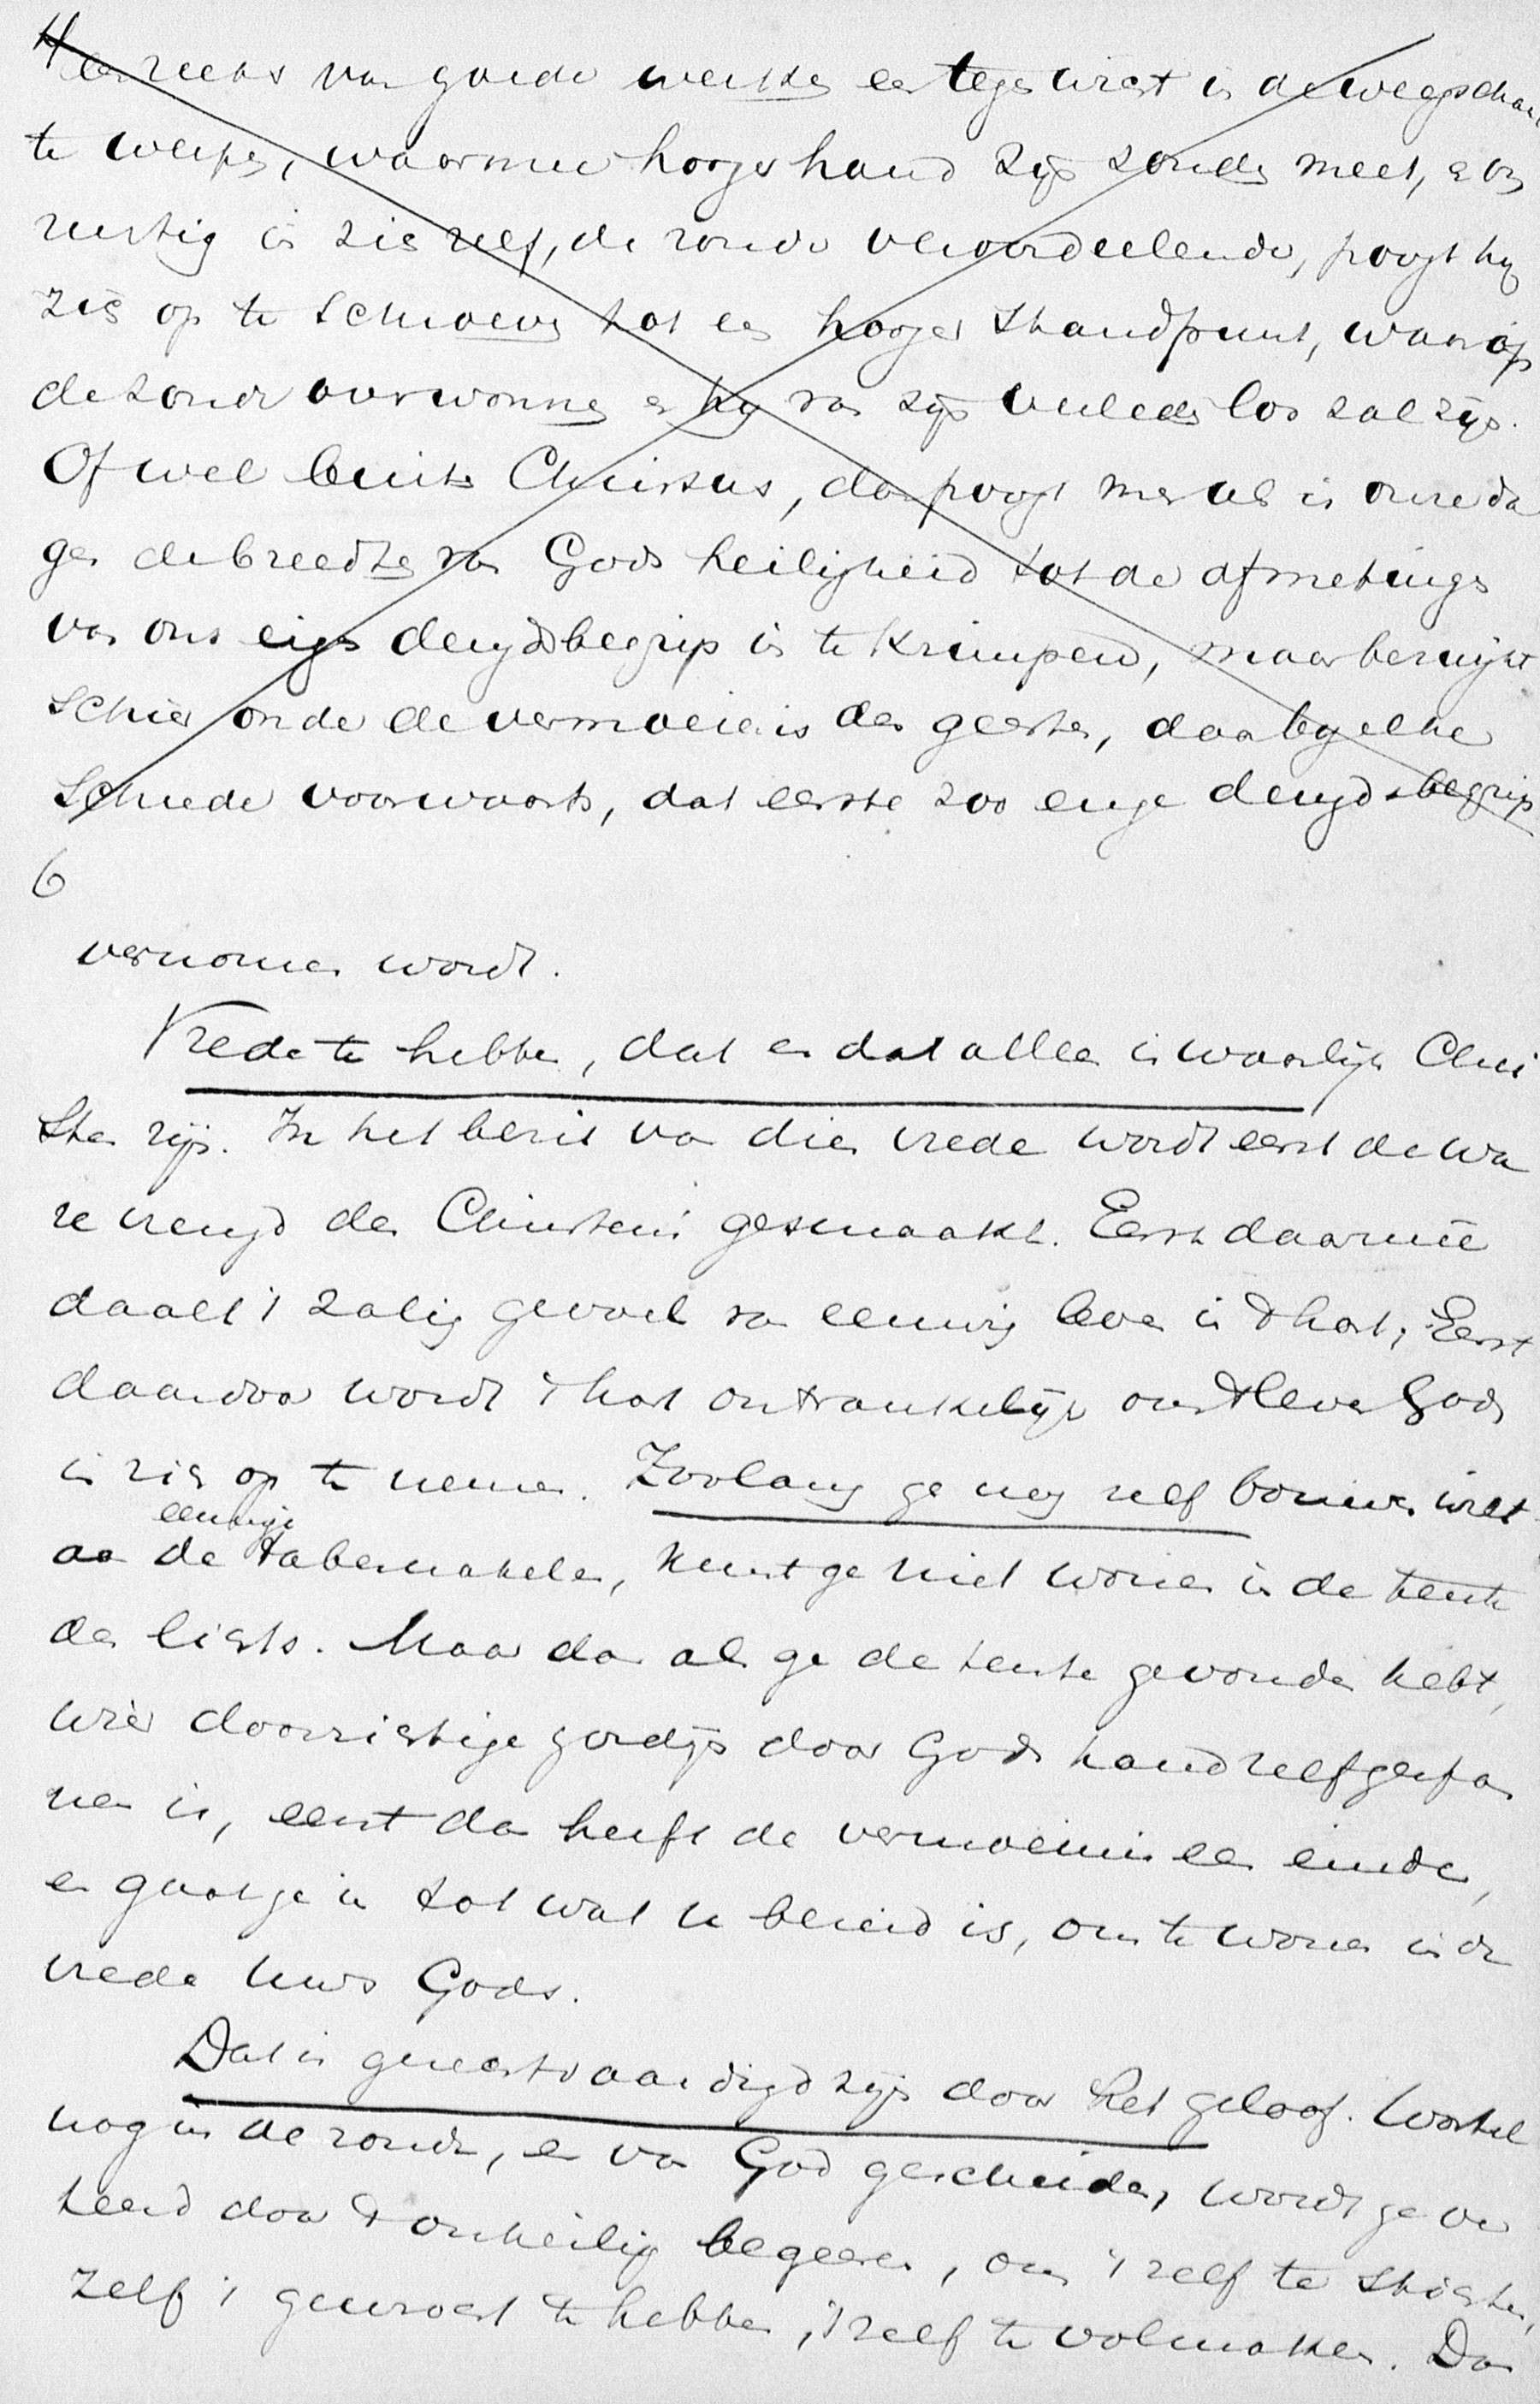 Een reeks van goede werken een tegenwicht in de weegschaal
te werpen, waarmee hooger hand zijn zonden meet, en on
rustig in zich zelf, de zonde veroordeelende, poogt hij
zich op te schroeven tot een hooger standpunt, waarop
de zonde overwonnen en hij van zijn verleden los zal zijn.
Of wel buiten Christus, dan poogt men als in onze da
gen de breedte van Gods heiligheid tot de afmetingen
van ons eigen deugdsbegrip in te krimpen, maar bezwijkt
schier onder de vermoeienis des geestes, daar bij elke
schrede voorwaarts, dat eerste zoo enge deugdsbegrip
6
vernomen wordt.
Vrede te hebben, dat en dat alleen is waarlijk Chri
sten zijn. In het bezit van dien vrede wordt eerst de wa
re vreugd des Christens gesmaakt. Eerst daarmeê
daalt 't zalig gevoel van eeuwig leven in 't hart, Eerst
daardoor wordt 't hart ontvankelijk om 't leven Gods
in zich op te nemen. Zoolang ge nog zelf bouwen wilt
eeuwige
aan de tabernakelen, kunt ge niet wonen in de tente
des lichts. Maar dan als ge de tente gevonden hebt,
wier doorzichtige gordijn door Gods hand zelf gespan
nen is, eerst dan heeft de vermoeienis een einde,
en gaat ge in tot wat u bereid is, om te wonen in den
vrede uws Gods.
Dat is gerechtvaardigd zijn door het geloof. Wortel
nog in de zonde, en van God gescheiden, wordt ge ver
teerd door 't onheilig begeeren, om 't zelf te stichten,
zelf 't gewrocht te hebben, 't zelf te volmaken. Dan